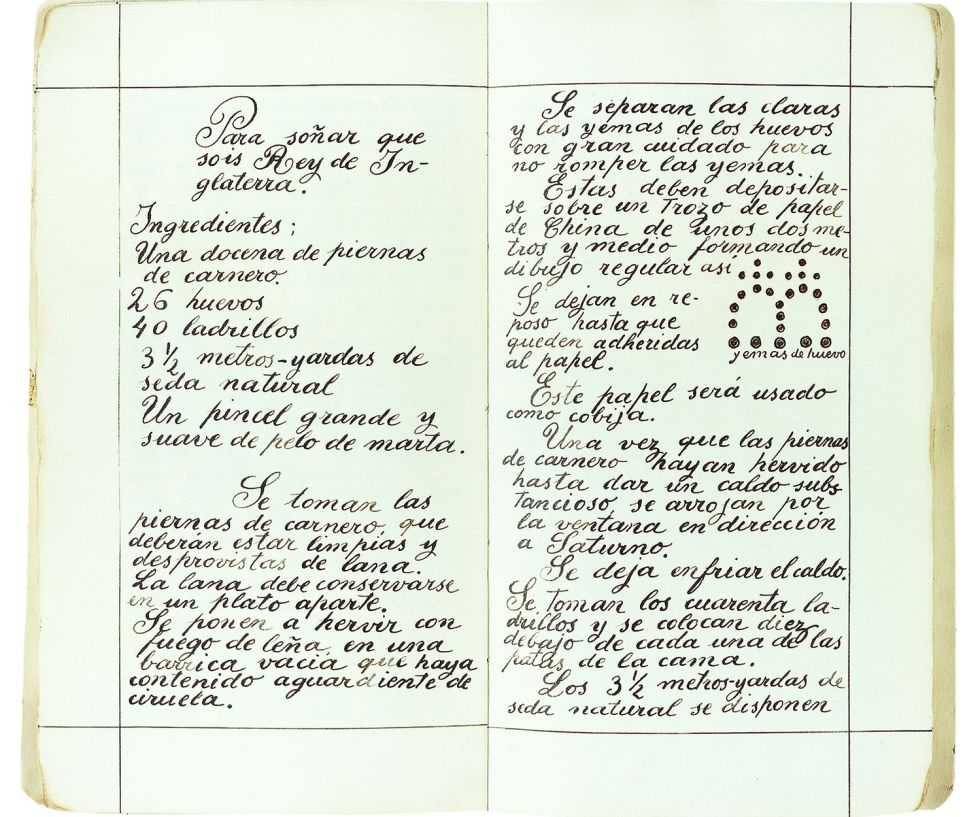 Para soñar que
sois Rey de In-
glaterra.
Ingredientes:
Una docena de piernas
de carnero.
26 huevos
40 ladrillos
3 ½ metros-yardas de
seda natural
Un pincel grande y
suave de pelo de marta.
Se toman las
piernas de carnero, que
deberán estar limpias y
desprovistas de lana.
La lana debe conservarse
en un plato aparte.
Se ponen a hervir con
fuego de leña, en una
barrica vacía que haya
contenido aguardiente de
ciruela.
Se separan las claras
y las yemas de los huevos
con gran cuidado para
no romper las yemas.
Estas deben depositar-
se sobre un trozo de papel
de China de unos dos me-
tros y medio formando un
dibujo regular así
Se dejan en re-
poso hasta que
queden adheridas
al papel.
yemas de huevo
Este papel será usado
como cobija.
Una vez que las piernas
de carnero hayan hervido
hasta dar un caldo subs
tancioso, se arrojan por
la ventana en dirección
a Saturno.
Se deja enfriar el caldo.
Se toman los cuarenta la-
drillos y se colocan diez
debajo de cada una de las
patas de la cama.
Los 3 ½ metros-yardas de
seda natural se disponen